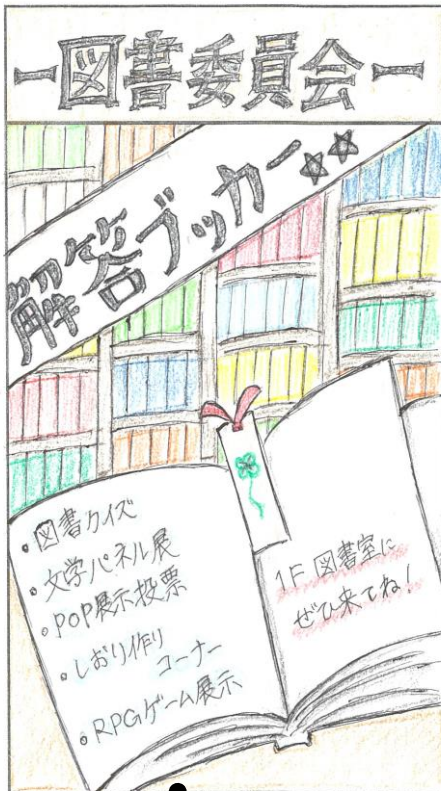 ー図書委員会ー
解答ブッカー☆☆
・図書クイズ
・文学パネル展
・POP展示投票
・しおり作り
コーナー
・RPGゲーム展示
1F 図書室に
ぜひ来てね!